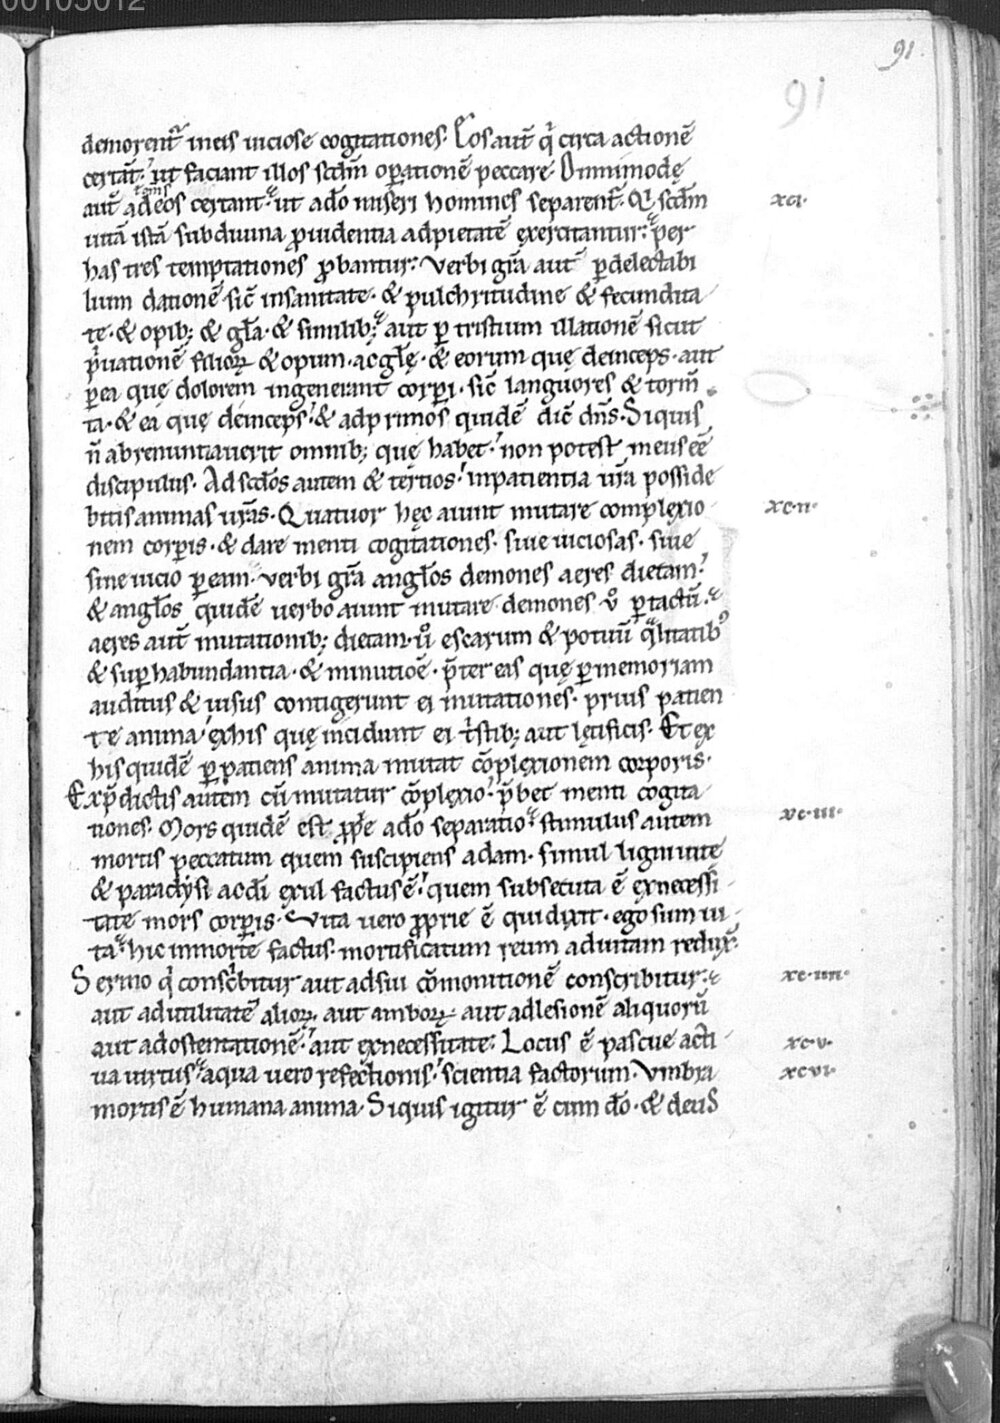 00105012
91.
91
demorent᷑ ineis uiciose cogitationes. Eos aut̄ qͥ circa actionē
certāt. ut faciant illos scdm̄ oꝑationē peccare. Omnimodę
aut̄ adeos certant. ut ado̅ miseri homines separent᷑. Qͥ scdm̄ xci.
uitā istā subdiuina ꝓuidentia adpietatē exercitantur. per
has tres temptationes ꝓbantur. Verbi gr̄a aut ꝑdelectabi
lium dationē sic̄ insanitate. & pulchritudine & fecundita
te. & opib; & gl̄a. & similib; aut ꝑ tristium illationē sicut
pͥuationē filioꝝ & opum. ac gl̄ę. & eorum quę deinceps. aut
ꝑea quę dolorem ingenerant corꝑi. sic̄ languores & torm̄
ta. & ea quę deinceps. & adprimos quidē dic̄ dn̄s. Siquis
n̄ abrenuntiauerit omnib; quę habet. non potest meus eē
discipulus. Ad scdo̅s autem & tertios. inpatientia ur̄a posside
bitis animas ur̄as. Quatuor hęc aiunt mutare complexio xc.ii.
nem corꝑis. & dare menti cogitationes. siue uiciosas. siue
sine uicio ꝑeam. verbi gr̄a angl̄os demones aeres dietam.
& angl̄os quidē uerbo aiunt mutare. demones ů ꝑtactū. &
aeres aut̄ mutationib; dietam ů escarum & potuū qͣlitatibꝰ
& suꝑhabundantia. & minutioē. p̄ter eas quę ꝑmemoriam
auditus & uisus contigerunt ei mutationes. prius patien
te anima exhis quę incidunt ei tͥstib; aut lętificis. Et ex
his quidē ꝑpatiens anima mutat cōplexionem corporis.
Exp̄dictis autem cū mutatur cōplexio. p̄bet menti cogita
tiones. Mors quidē est ꝓpͥe ado̅ separatio. stimulus autem xc.iii.
mortis peccatum quem suscipiens adam. simul ligni uite
& paradysi ac dī exul factus ē. quem subsecuta ē exnecessi
tate mors corꝑis. Vita uero ꝓprie ē qui dixit. ego sum ui
ta. hic inmorte factus. mortificatum reum aduitam redux̄.
Sermo qͥ conscͥbitur aut adsui cōmonitionē conscribitur. & xc.iiii.
aut adutilitatē alioꝝ. aut amboꝝ. aut adlesionē aliquorū
aut adostentationē. aut exnecessitate. Locus ē pascue acti xc.v.
ua uirtus. aqua uero refectionis. scientia factorum. Vmbra xcvi.
mortis ē humana anima. Siquis igitur ē cum do̅. & deus